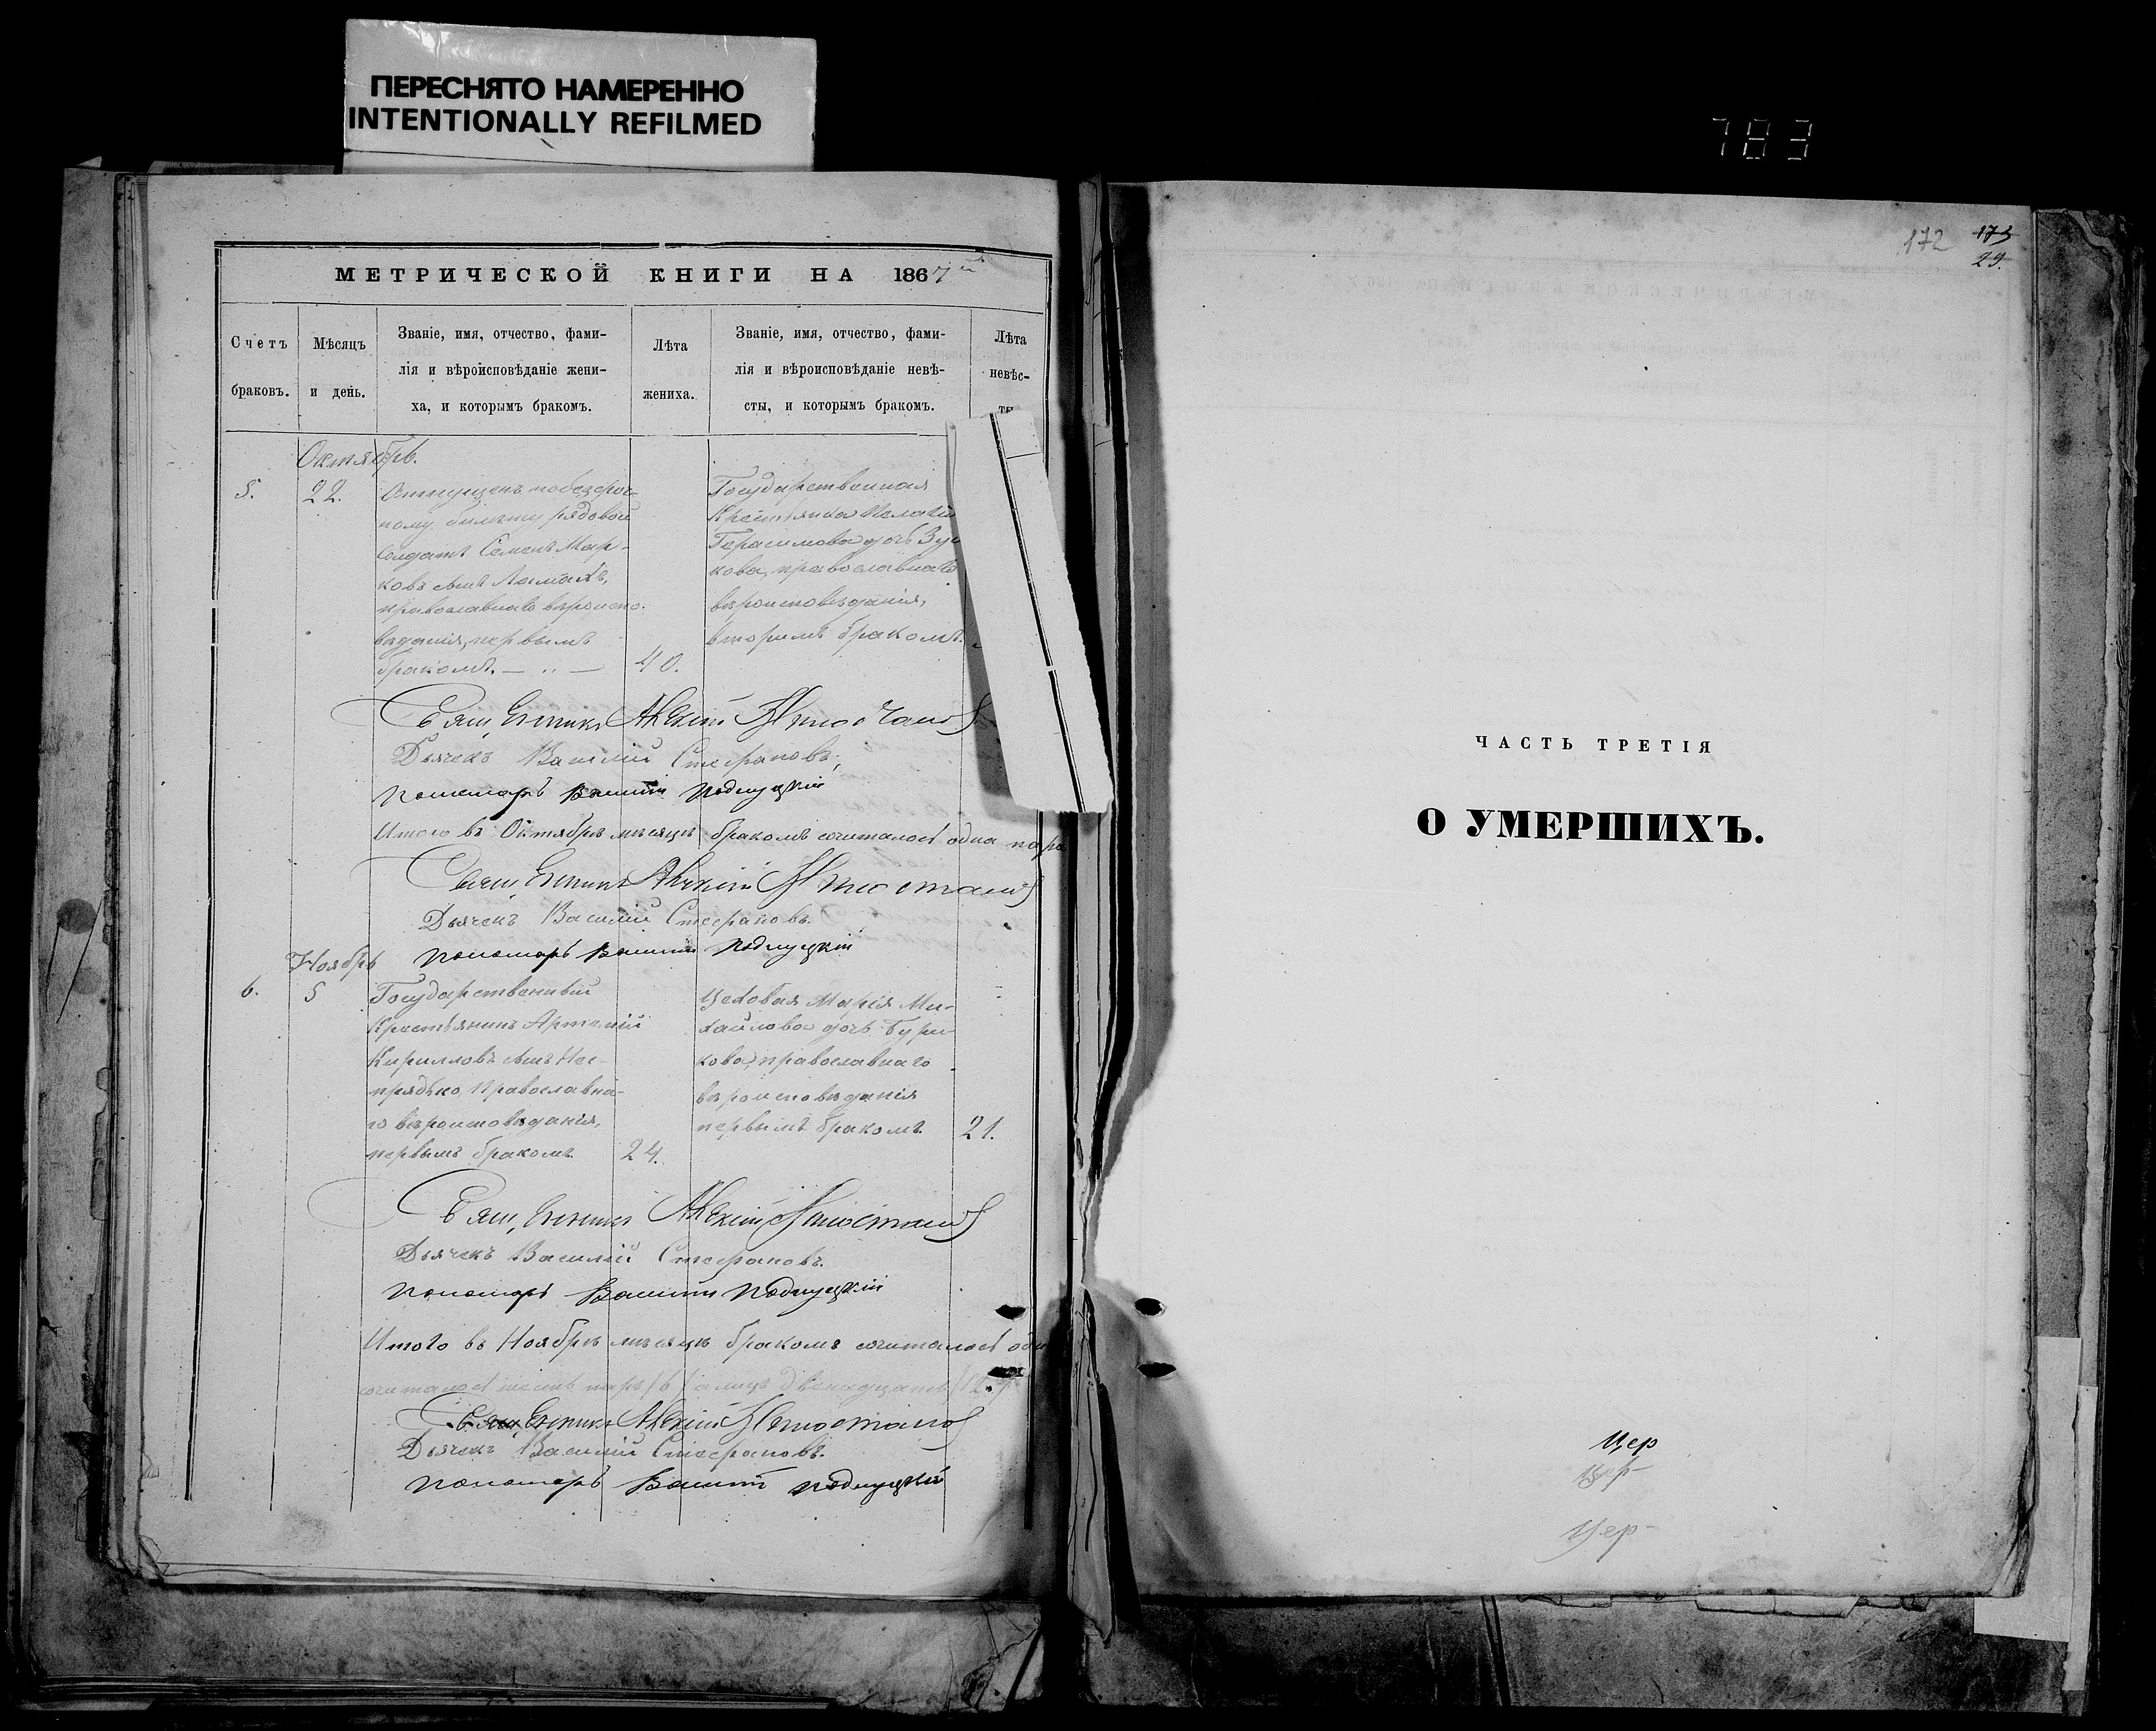 ПЕРЕСНЯТО НАМЕРЕННО
INTENTIONALLY REFILMED
783
МЕТРИЧЕСКОЙ КНИГИ НА 1867
Счетъ браковъ.
Мѣсяцъ и день.
Званіе, имя, отчество, фами-
лія и вѣроисповѣданіе жени-
ха, и которымъ бракомъ.
Лѣта жениха.
Званіе, имя, отчество, фами-
лія и вѣроисповѣданіе невѣ-
сты, и которымъ бракомъ.
Лѣта
невѣс-
Октябрь.
5.
22.
Отпущенъ по безсроч-
ному билету рядовой
солдатъ Семенъ Мар-
ковъ сынъ
православнаго вѣроиспо-
вѣданія, первымъ
бракомъ.
40.
Государственная
Крестьянка
Герасимова дочь
кова, православнаго
вѣроисповѣданія,
вторымъ бракомъ.
Священникъ Алексій
Дьячекъ Василій Стефановъ,
Пономарь
Итого въ Октябрѣ мѣсяцѣ бракомъ сочиталось одна пара
Священникъ Алексій
Дьячекъ Василій Стефановъ.
Пономарь
Ноябрь
6.
5
Государственный
Крестьянинъ Артемій
Кирилловъ сынъ Не-
прядько, Православна-
го вѣроисповѣданія,
первымъ бракомъ.
24.
Цеховая Марія Ми-
хайлова дочь Бури-
кова, православнаго
вѣроисповѣданія
первымъ бракомъ.
21.
Священникъ Алексій
Дьячекъ Василій Стефановъ.
Пономарь
Итого въ Ноябрѣ мѣсяцѣ бракомъ сочиталось
сочиталось шесть паръ (6) а лицъ двенадцать (12.)
Священникъ Алексій
Дьячекъ Василій Стефановъ.
Пономарь
172
173
29.
ЧАСТЬ ТРЕТІЯ
О УМЕРШИХЪ.
Цер
Цер-
Цер-